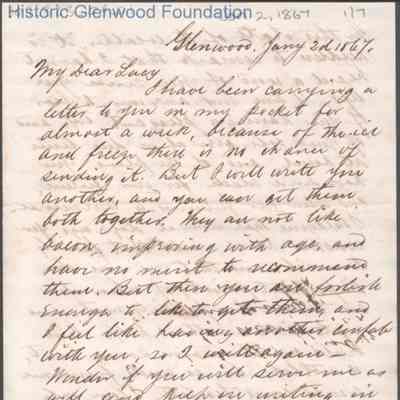 Historic Glenwood Foundation
Jan 2, 1867
Glenwood. Jany 2d 1867.
My Dear Lucy
I have been carrying a
letter to you in my pocket for
almost a week, because of the ice
and freeze there is no chance of
sending it. But I will write you
another, and you can get them
both together. They are not like
bacon, improving with age, and
have no merit to recommend
them. But then you are foolish
enough to like to get them, and
I feel like having another
with you, so I will again —
Wonder if you will serve me as
will and keep on writing in